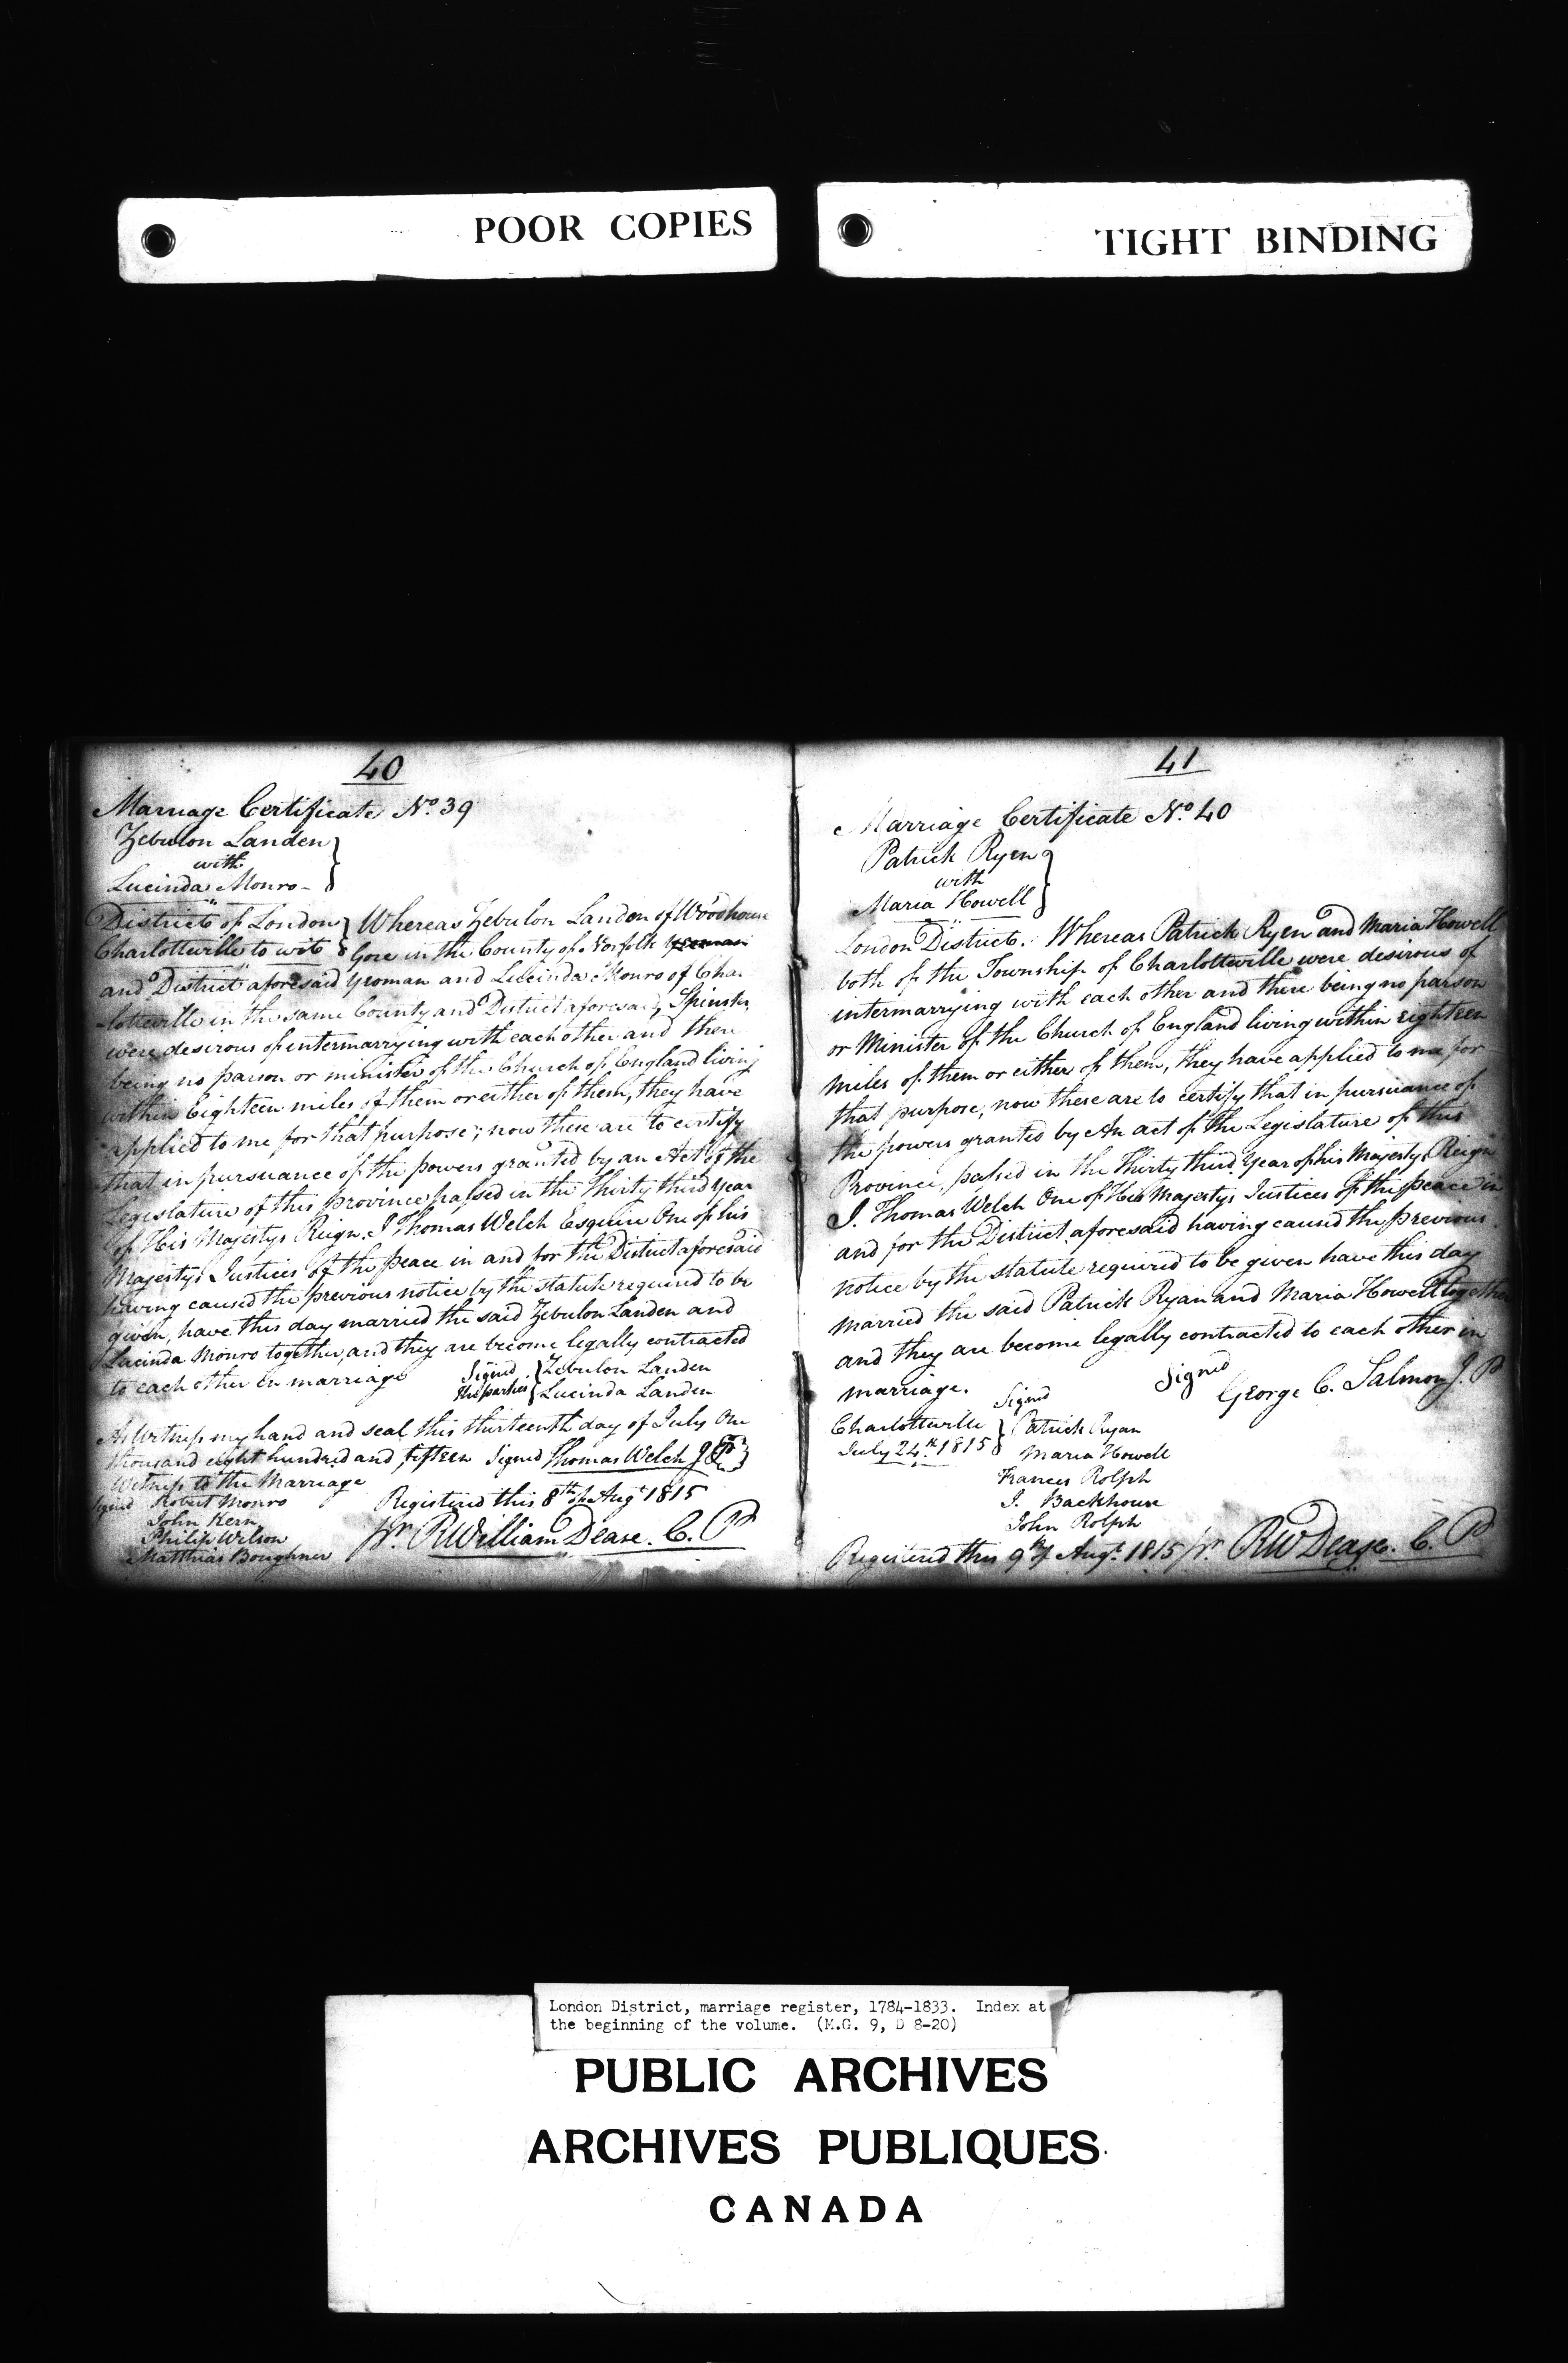 POOR COPIES
TIGHT BINDING
40
Marriage Certificate No. 39
Zebulon Landen
with
Lucinda Monro
District of London } Whereas Zebulon Landen of Woodhouse
Charlotteville to wit } Gore in the County of Norfolk yeoman
and District aforesaid yeoman and Lucinda Monro of Char
lotteville in the same County and District aforesaid, Spinster,
were desirous of intermarrying with each other and there
being no parson or minister of the Church of England living
within Eighteen miles of them or either of them, they have
applied to me for that purpose; now these are to certify
that in pursuance of the powers granted by an Act of the
Legislature of this Province passed in the Thirty third Year
of His Majestys Reign. I Thomas Welch Esquire One of his
Majestys Justices of the peace in and for the District aforesaid
having caused the previous notice by the statute required to be
given, have this day married the said Zebulon Landen and
Lucinda Monro together, and they are become legally contracted
to each other in marriage Signed } Zebulon Landen
the parties } Lucinda Landen
As Witness my hand and seal this thirteenth day of July One
thousand eight hundred and fifteen Signed Thomas Welch J.P.
Witness to the Marriage
Signed Robert Monro
John Kern
Philip Wilson
Matthias Boughner
Registered this 8th of Augt 1815
pr. RWilliam Dease. C. P
41
Marriage Certificate No. 40
Patrick Ryen
with
Maria Howell
London District. Whereas Patrick Ryen and Maria Howell
both of the Township of Charlotteville were desirous of
intermarrying with each other and there being no parson
or Minister of the Church of England living within eighteen
miles of them or either of them, they have applied to me for
that purpose, now these are to certify that in pursuance of
the powers granted by An act of the Legislature of this
Province, passed in the Thirty third Year of his Majestys Reign
I. Thomas Welch One of His Majestys Justices of the peace in
and for the District aforesaid having caused the previous
notice by the statute required to be given have this day
married the said Patrick Ryan and Maria Howell together
and they are become legally contracted to each other in
marriage. Signed George C. Salmon J. P
Signed
Charlotteville } Patrick Ryan
July 24th 1815 } Maria Howell
Frances Rolph
J. Backhouse
John Rolph
Registered this 9th of Augt. 1815 pr RW Dease. C. P
London District, marriage register, 1784-1833. Index at
the beginning of the volume. (M.G. 9, D 8-20)
PUBLIC ARCHIVES
ARCHIVES PUBLIQUES
CANADA